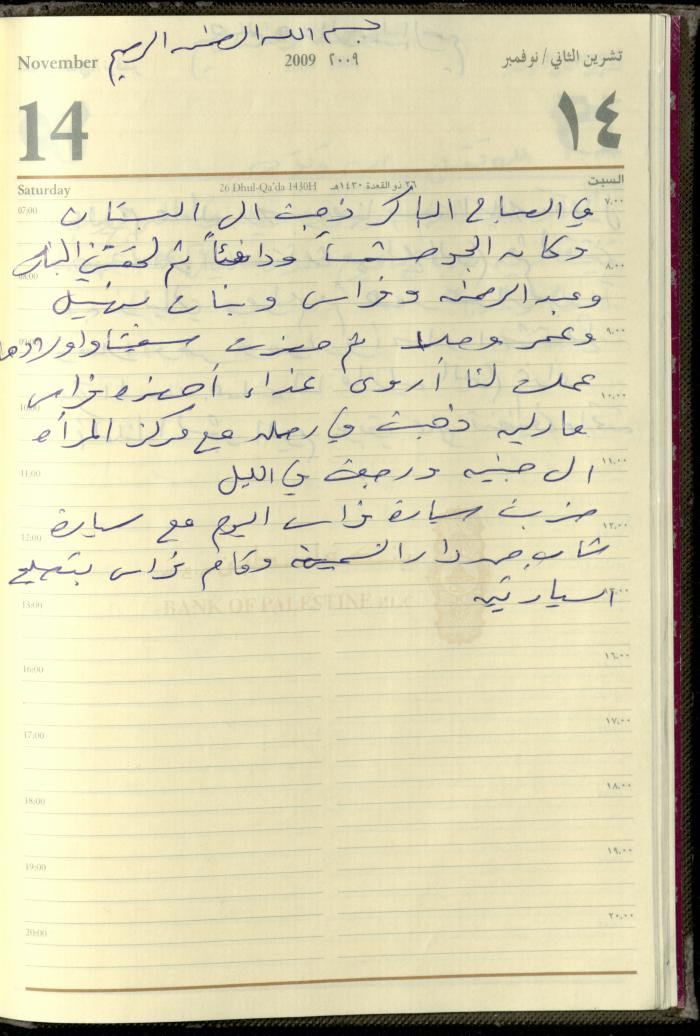 بسم الله الرحمن الرحيم
November
2009 ٢٠٠٩
تشرين الثاني / نوفمبر
14
١٤
Saturday
26 Dhul-Qa'da 1430H ٢٦ ذو القعدة ١٤٣٠هـ
السبت
07:00 ٧:٠٠
في الصباح الباكر ذهبت الى البستان
وكان الجو مشمساً ودافئاً ثم لحقتني
08:00 ٨:٠٠
وعبد الرحمن وفراس وبنات سهيل
09:00 ٩:٠٠
وعمر وصلا ثم حضرت
عملت لنا أروى غداء أحضره فراس
10:00 ١٠:٠٠
ذهبت في رحلة مع مركز المرأة
11:00 ١١:٠٠
الى جنين ورجعت في الليل
ضربت سيارة فراس اليوم مع سيارة
12:00 ١٢:٠٠
شاب من دار وقام فراس بتصليح
السيارتين
13:00 ١٣:٠٠
BANK OF PALESTINE P.L.C
16:00 ١٦:٠٠
17:00 ١٧:٠٠
18:00 ١٨:٠٠
19:00 ١٩:٠٠
20:00 ٢٠:٠٠